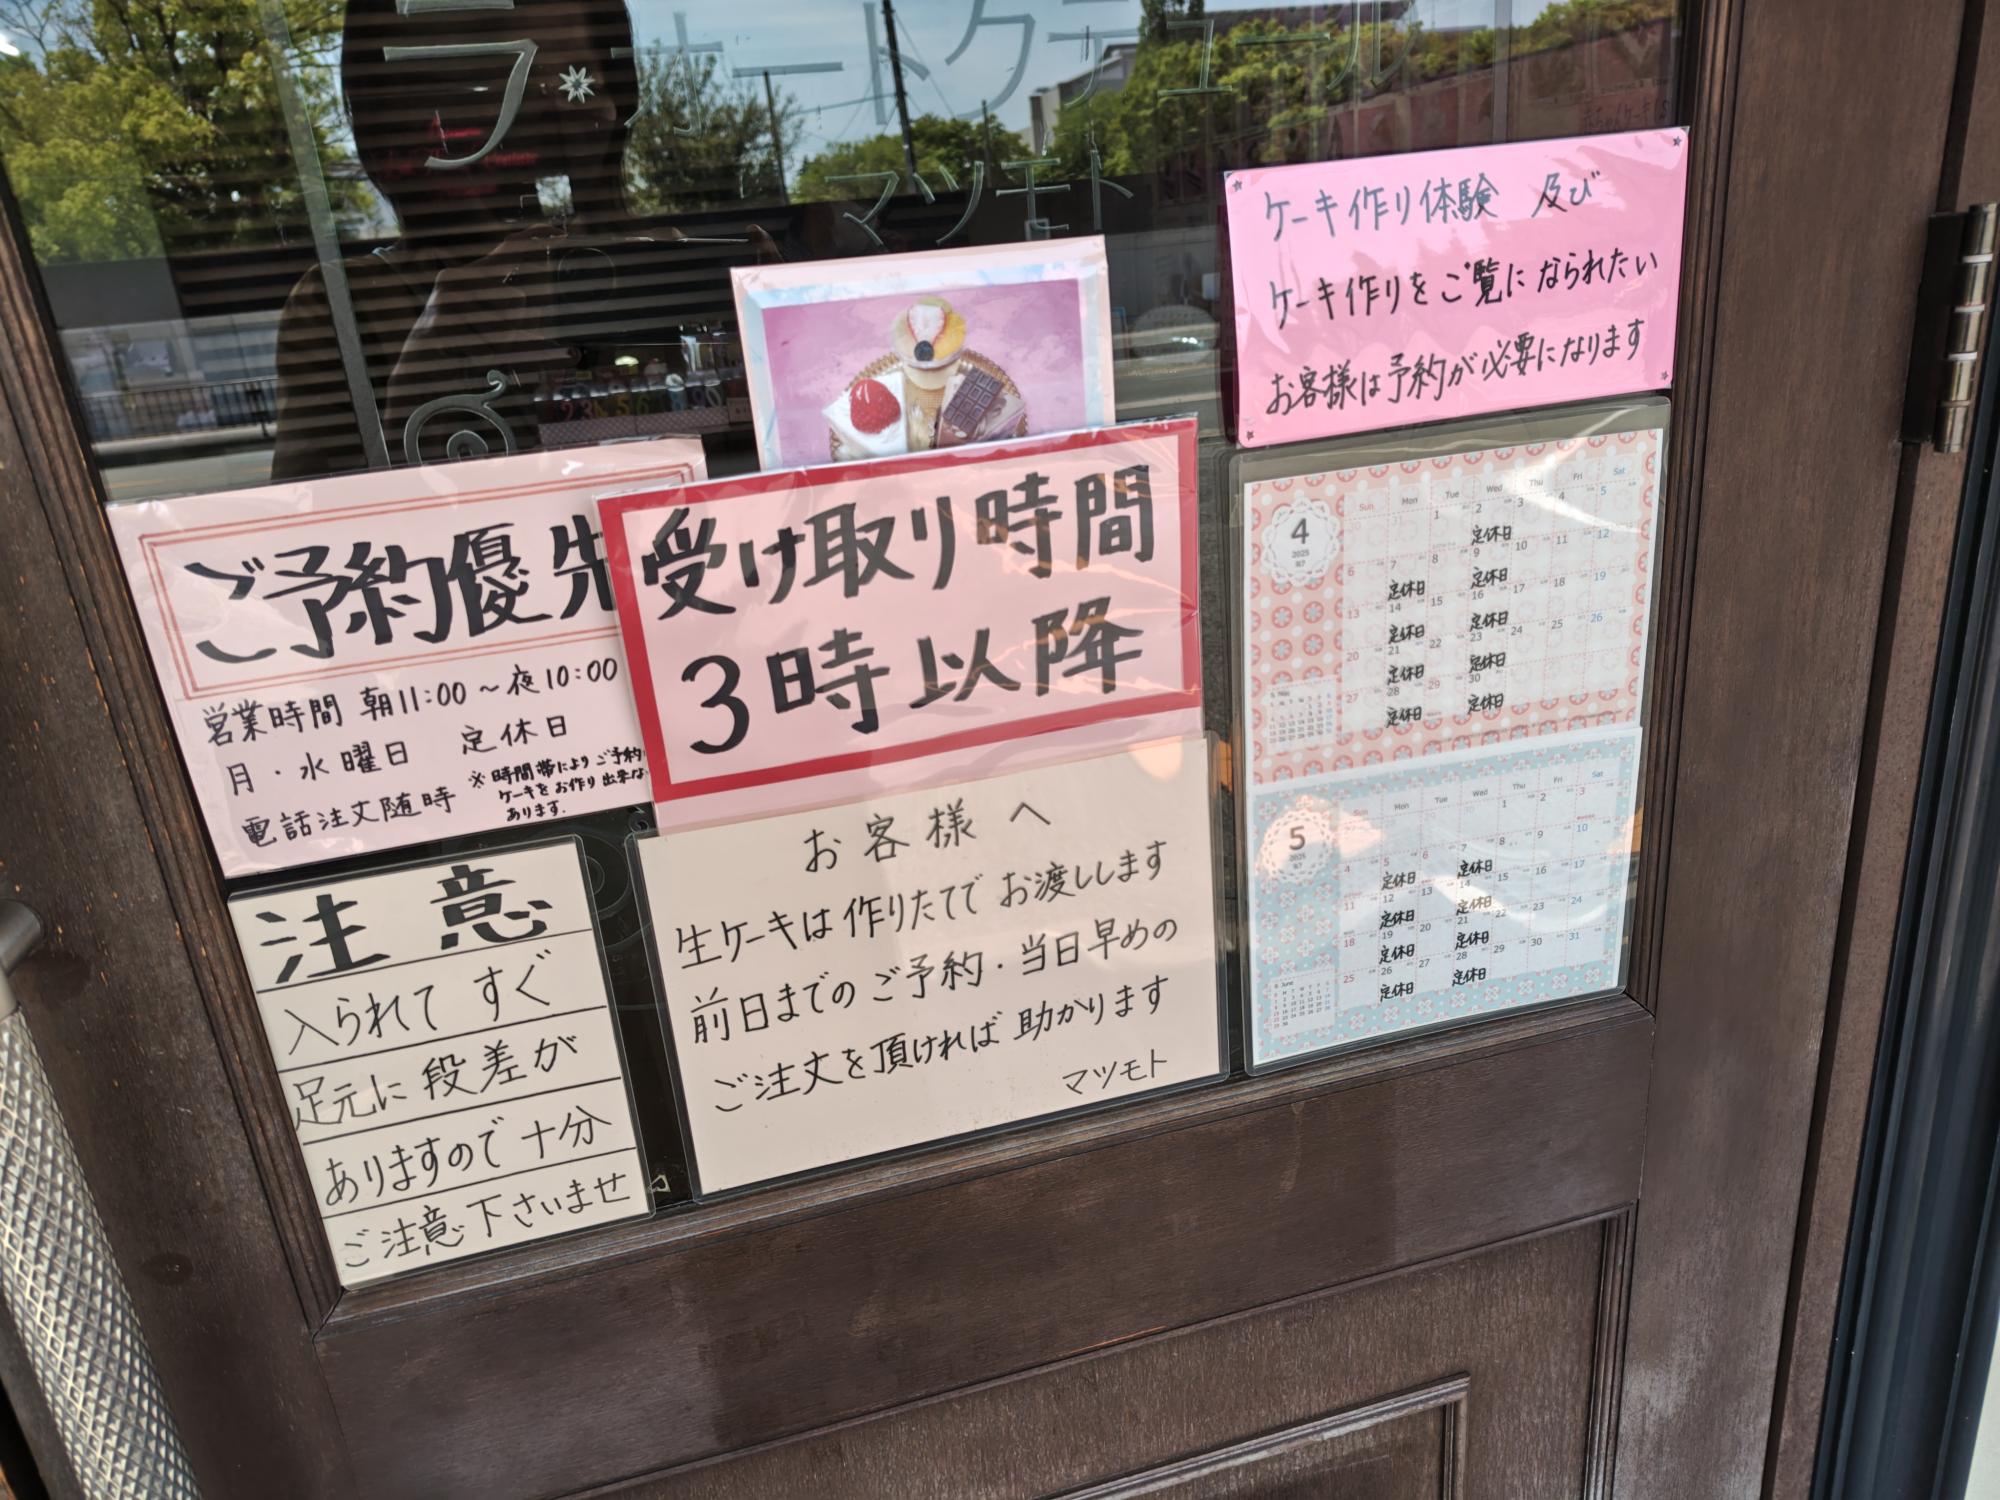 ラ・オートクチュール
マツモト
ケーキ作り体験 及び
ケーキ作りをご覧になられたい
お客様は予約が必要になります
ご予約優先
営業時間 朝11:00～夜10:00
月・水曜日 定休日
電話注文随時
※時間帯によりご予約
ケーキをお作り出来な
あります.
受け取り時間
3時以降
お客様へ
生ケーキは作りたてでお渡しします
前日までのご予約・当日早めの
ご注文を頂ければ助かります
マツモト
注意
入られてすぐ
足元に段差が
ありますので十分
ご注意下さいませ
4
2025
Sun Mon Tue Wed Thu Fri Sat
1 2 3 4 5
定休日
6 7 8 9 10 11 12
定休日 定休日
13 14 15 16 17 18 19
定休日 定休日
20 21 22 23 24 25 26
定休日 定休日
27 28 29 30
定休日 定休日
5
2025
Mon Tue Wed Thu Fri Sat
1 2 3
4 5 6 7 8 9 10
定休日 定休日
11 12 13 14 15 16 17
定休日 定休日
18 19 20 21 22 23 24
定休日 定休日
25 26 27 28 29 30 31
定休日 定休日